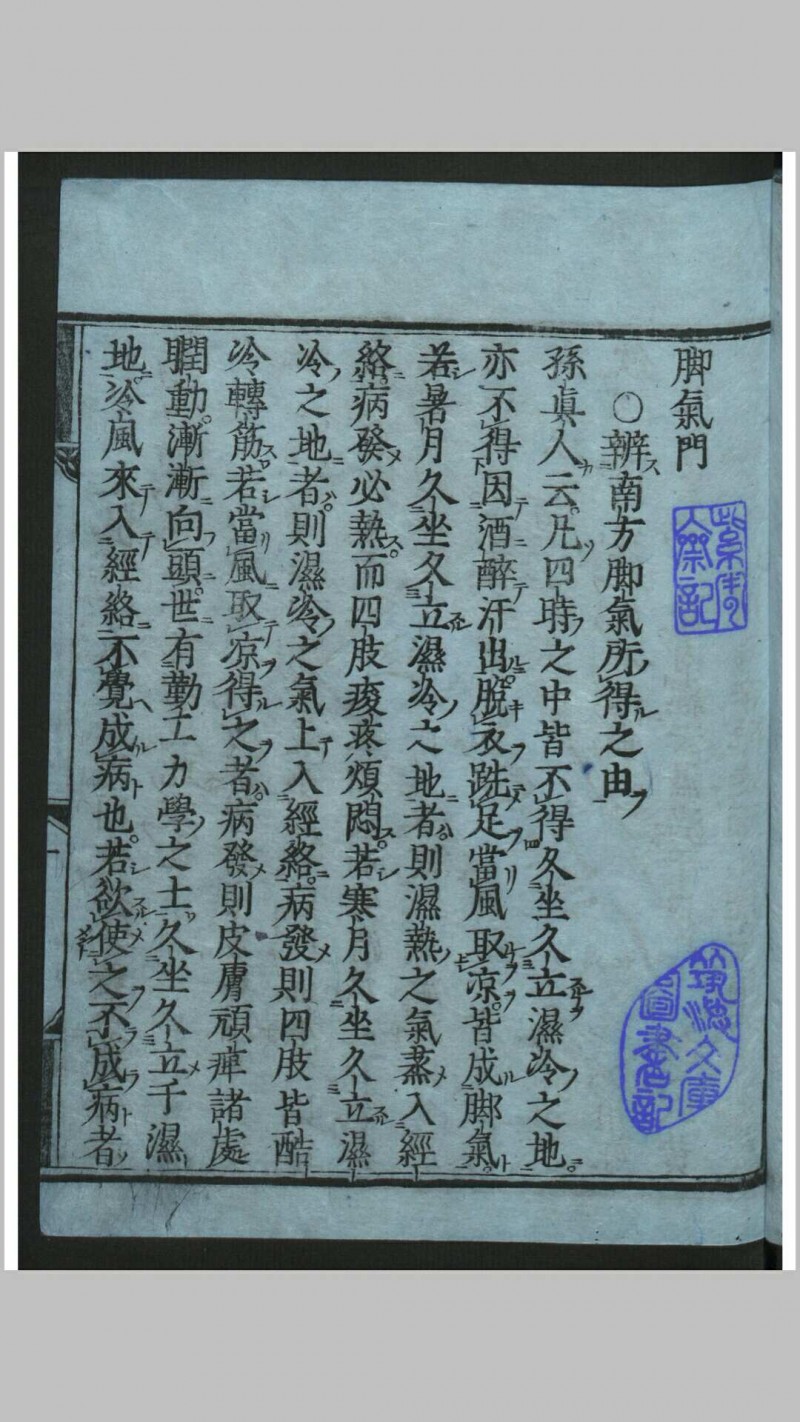 脚氣門
○辨南方脚氣所得之由
孫真人云凡四時之中皆不得久坐久立濕冷之地
亦不得因酒醉汗出脫衣跣足當風取凉皆成脚氣
若暑月久坐久立濕冷之地者則濕熱之氣蒸入經
絡病發必熱而四肢痠疼煩悶若寒月久坐久立濕
冷之地者則濕冷之氣上入經絡病發則四肢皆酷
冷轉筋若當風取凉得之者病發則皮膚頑痺諸處
瞤動漸漸向頭世有勤工力學之士久坐久立于濕
地冷風來入經絡不覺成病也若欲使之不成病者